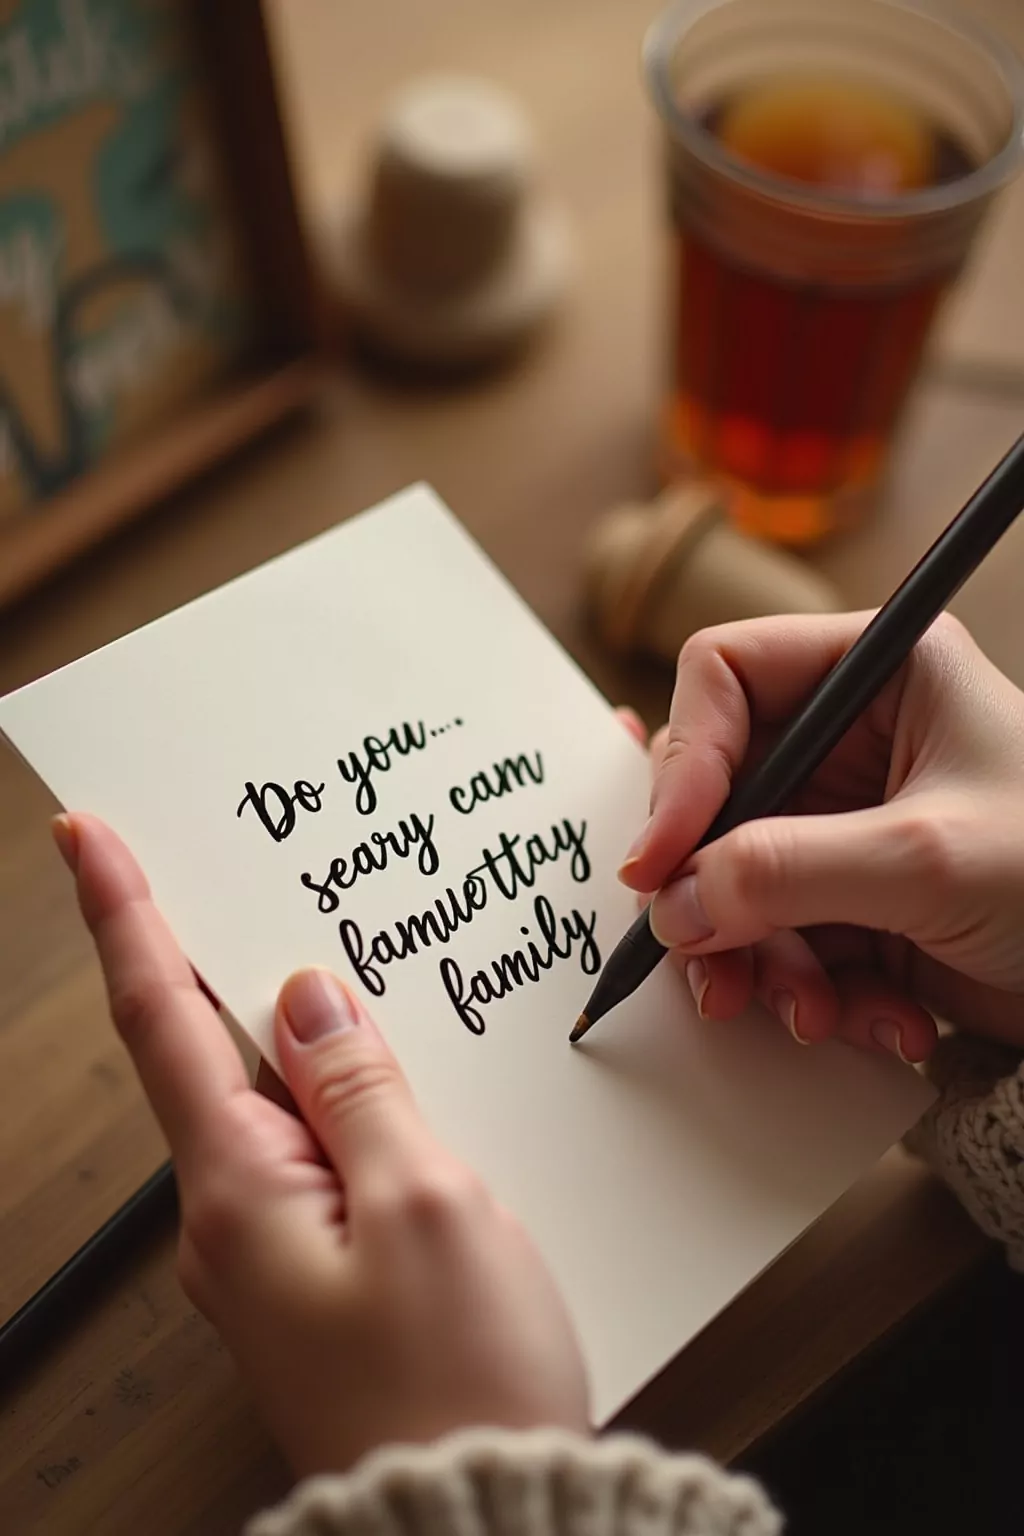 Do you....
seary cam
famuettay
family